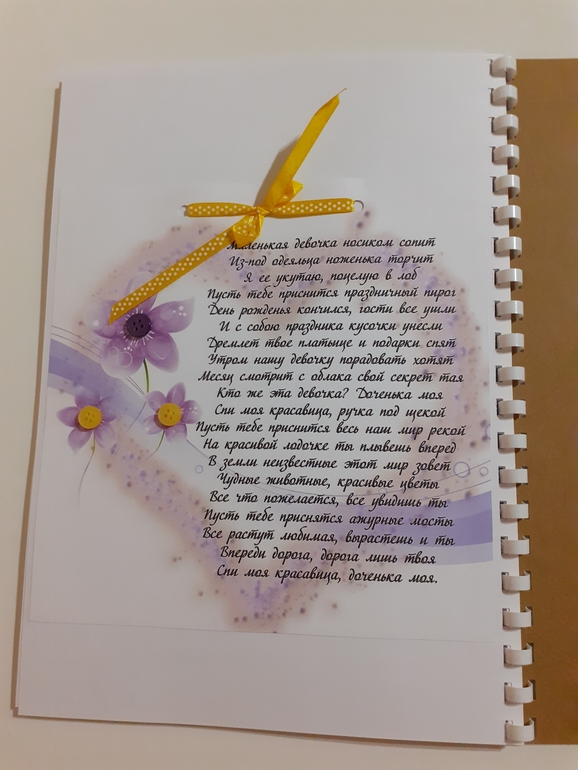 Маленькая девочка носиком сопит
Из-под одеяльца ноженька торчит
Я ее укутаю, поцелую в лоб
Пусть тебе приснится праздничный пирог
День рожденья кончился, гости все ушли
И с собою праздника кусочки унесли
Дремлет твое платьице и подарки спят
Утром нашу девочку порадовать хотят
Месяц смотрит с облака свой секрет тая
Кто же эта девочка? Доченька моя
Спи моя красавица, ручка под щекой
Пусть тебе приснится весь наш мир рекой
На красивой лодочке ты плывешь вперед
В земли неизвестные этот мир зовет
Чудные животные, красивые цветы
Все что пожелается, все увидишь ты
Пусть тебе приснятся ажурные мосты
Все растут любимая, вырастешь и ты
Впереди дорога, дорога лишь твоя
Спи моя красавица, доченька моя.